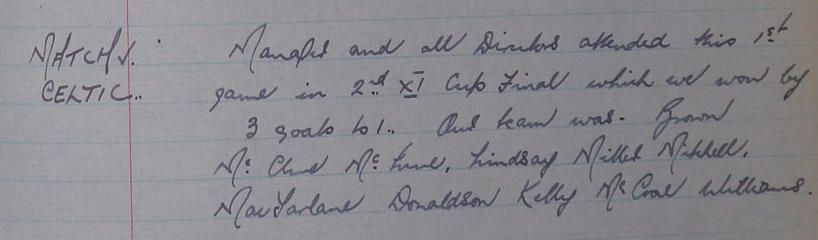 MATCH V. Manager and all Directors attended this 1st
CELTIC.. game in 2nd XI Cup Final which we won by
3 goals to 1.. Our team was. Brown
Mc Lindsay Miller Mitchell.
MacFarlane Donaldson Kelly Williams.